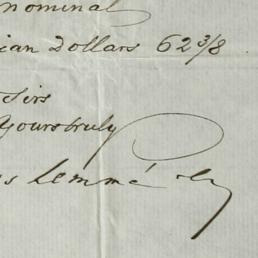 nominal
ian Dollars 62 3/8
Sirs
Yours truly
s Lemmé